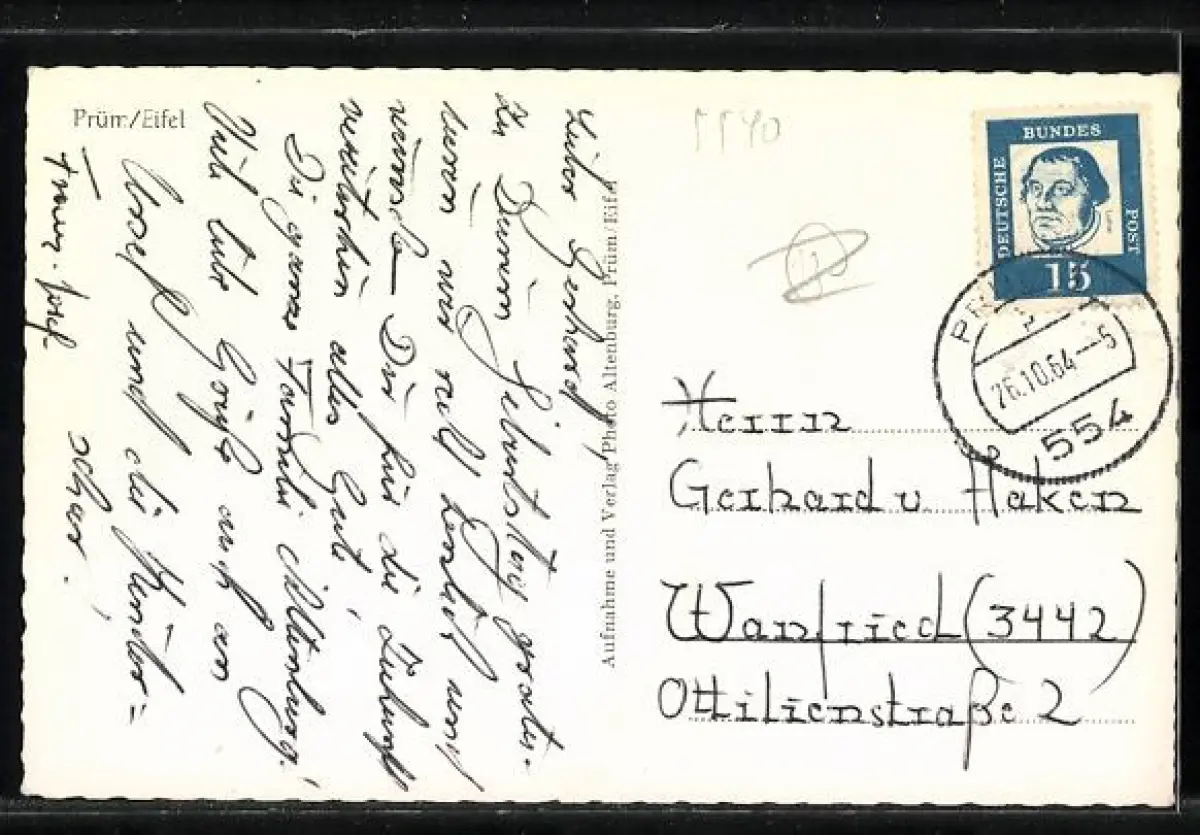 Prüm/Eifel
Lieber Gerhard!
Zu Deinem Geburtstag gratu-
lieren wir recht herzlich und
wünschen Dir für die Zukunft
weiterhin alles Gute!
Die ganze Familie Altenburg!
Viele liebe Grüße auch an
Josef und die Kinder=
schar.
Franz-Josef
Aufnahme und Verlag Photo Altenburg, Prüm/Eifel
5540
DEUTSCHE BUNDES POST
Luther
15
PRÜM
26.10.64--5
554
Herrn
Gerhard v. Haken
Wanfried (3442)
Ottilienstraße 2